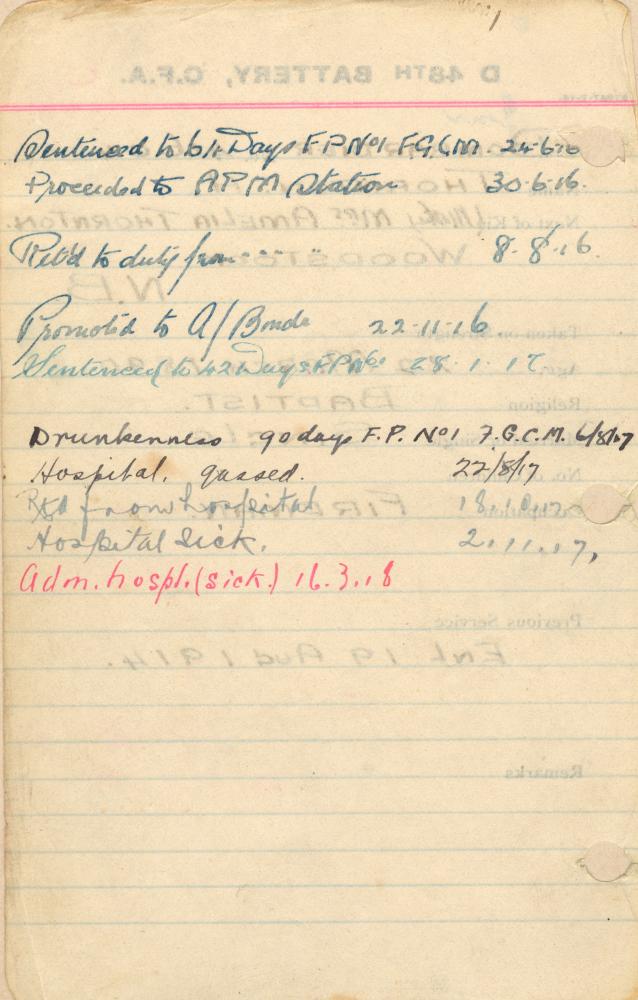 Sentenced to 64 Days F.P. No 1 F.G.C.M 24-6-16
Proceeded to A.P.M Station 30-6-16.
Ret'd to duty from 8-8-16.
Promoted to A/Bomdr 22-11-16
Sentenced to 42 Days F.P. No 28.1.17
Drunkenness 90 days F.P. No 1 F.G.C.M. 6/8/17
Hospital, gassed. 22/8/17
Rtd from hospital 18.10.17
Hospital Sick. 2.11.17,
Adm. hospl. (sick.) 16.3.18